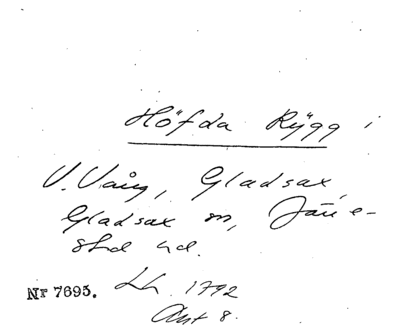 Höfda Rÿgg i
V. Vång, Gladsax,
Gladsax sn, Järre-
stad hd.
Nr 7695. Lh. 1792
Akt 8.